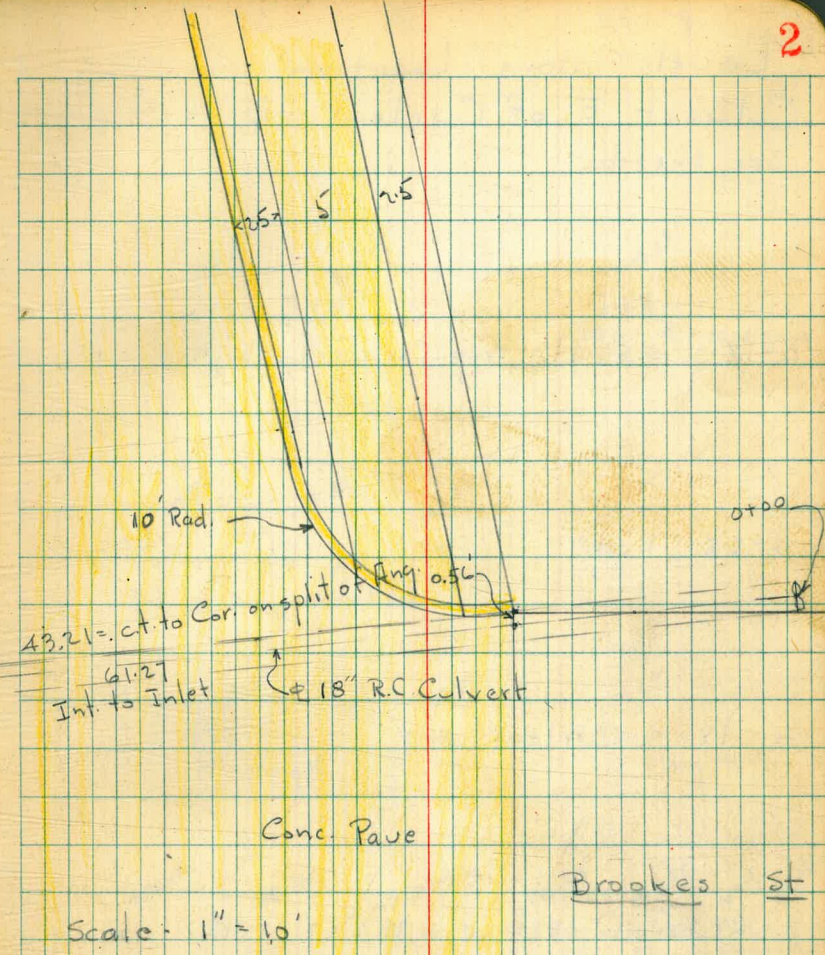 2
2.5
5
2.5
10' Rad.
0+00
0.56'
43.21 = c.t. to Cor. on split of Ang.
61.27
Int. to Inlet
℄ 18" R.C Culvert
Conc. Pave
Brookes St
Scale - 1" = 10'